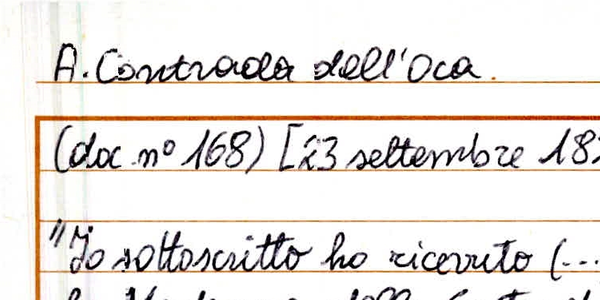 A. Contrada dell'Oca.
(doc nº 168) [23 settembre 18
"Io sottoscritto ho ricevuto (...